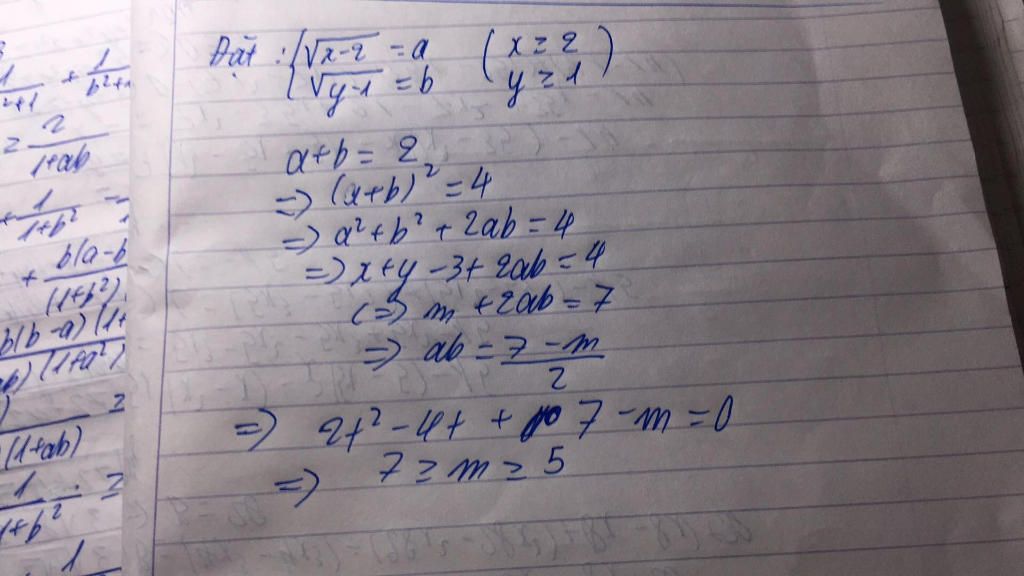 1/(²+1) + 1/(b²+
≥ 2/(1+ab)
+ 1/(1+b²)
+ b(a-b/(1+b²)
b(b-a)(1+
b)(1+a²)
≥
(1+ab)
1/(1+b²) ≥
1
Đặt : { √(x-2) = a ( x ≥ 2
√(y-1) = b y ≥ 1 )
a+b = 2
=> (a+b)² = 4
=> a² + b² + 2ab = 4
=> x+y -3 + 2ab = 4
(=> m + 2ab = 7
=> ab = (7 - m)/2
=> 2t² - 4t + 7 - m = 0
=> 7 ≥ m ≥ 5